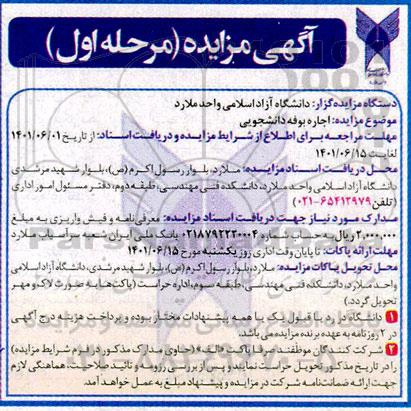 آگهی مزایده (مرحله اول)
دستگاه مزایده‌گزار: دانشگاه آزاد اسلامی واحد ملارد
موضوع مزایده: اجاره بوفه دانشجویی
مهلت مراجعه برای اطلاع از شرایط مزایده و دریافت اسناد: از تاریخ ۱۴۰۱/۰۶/۰۱
لغایت ۱۴۰۱/۰۶/۱۵
محل دریافت اسناد مزایده: ملارد، بلوار رسول اکرم (ص)، بلوار شهید مرشدی
دانشگاه آزاد اسلامی واحد ملارد، دانشکده فنی مهندسی، طبقه دوم، دفتر مسئول امور اداری
(تلفن ۶۵۴۱۲۹۷۹-۰۲۱)
مدارک مورد نیاز جهت دریافت اسناد مزایده: معرفی‌نامه و فیش واریزی به مبلغ
۲,۰۰۰,۰۰۰ ریال به حساب شماره ۰۲۱۸۷۹۲۲۲۰۰۰۴ بانک ملی ایران شعبه سرآسیاب ملارد
مهلت ارائه پاکات: تا پایان وقت اداری روز یکشنبه مورخ ۱۴۰۱/۰۶/۱۵
محل تحویل پاکات مزایده: ملارد، بلوار رسول اکرم (ص)، بلوار شهید مرشدی، دانشگاه آزاد اسلامی
واحد ملارد، دانشکده فنی مهندسی، طبقه سوم، اداره حراست (پاکت‌ها به صورت لاک و مهر
تحویل گردد)
۱ دانشگاه در رد یا قبول یک یا همه پیشنهادات مختار بوده و پرداخت هزینه درج آگهی
در ۲ روزنامه به عهده برنده مزایده می‌باشد.
۲ شرکت کنندگان موظفند صرفا پاکت «الف» (حاوی مدارک مذکور در فرم شرایط مزایده)
را در تاریخ مذکور تحویل حراست نمایند و پس از بررسی رزومه و تائید صلاحیت، هماهنگی لازم
جهت ارائه ضمانت‌نامه شرکت در مزایده و پیشنهاد مبلغ به عمل خواهد آمد.